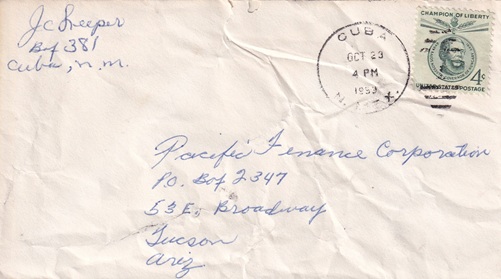 Jc Sleeper
Box 381
Cuba, n.m.
CUBA
OCT 23
4 PM
N. MEX.
CHAMPION OF LIBERTY
4¢
UNITED STATES POSTAGE
Pacific Finance Corporation
P.O. Box 2347
53 E. Broadway
Tucson
Ariz